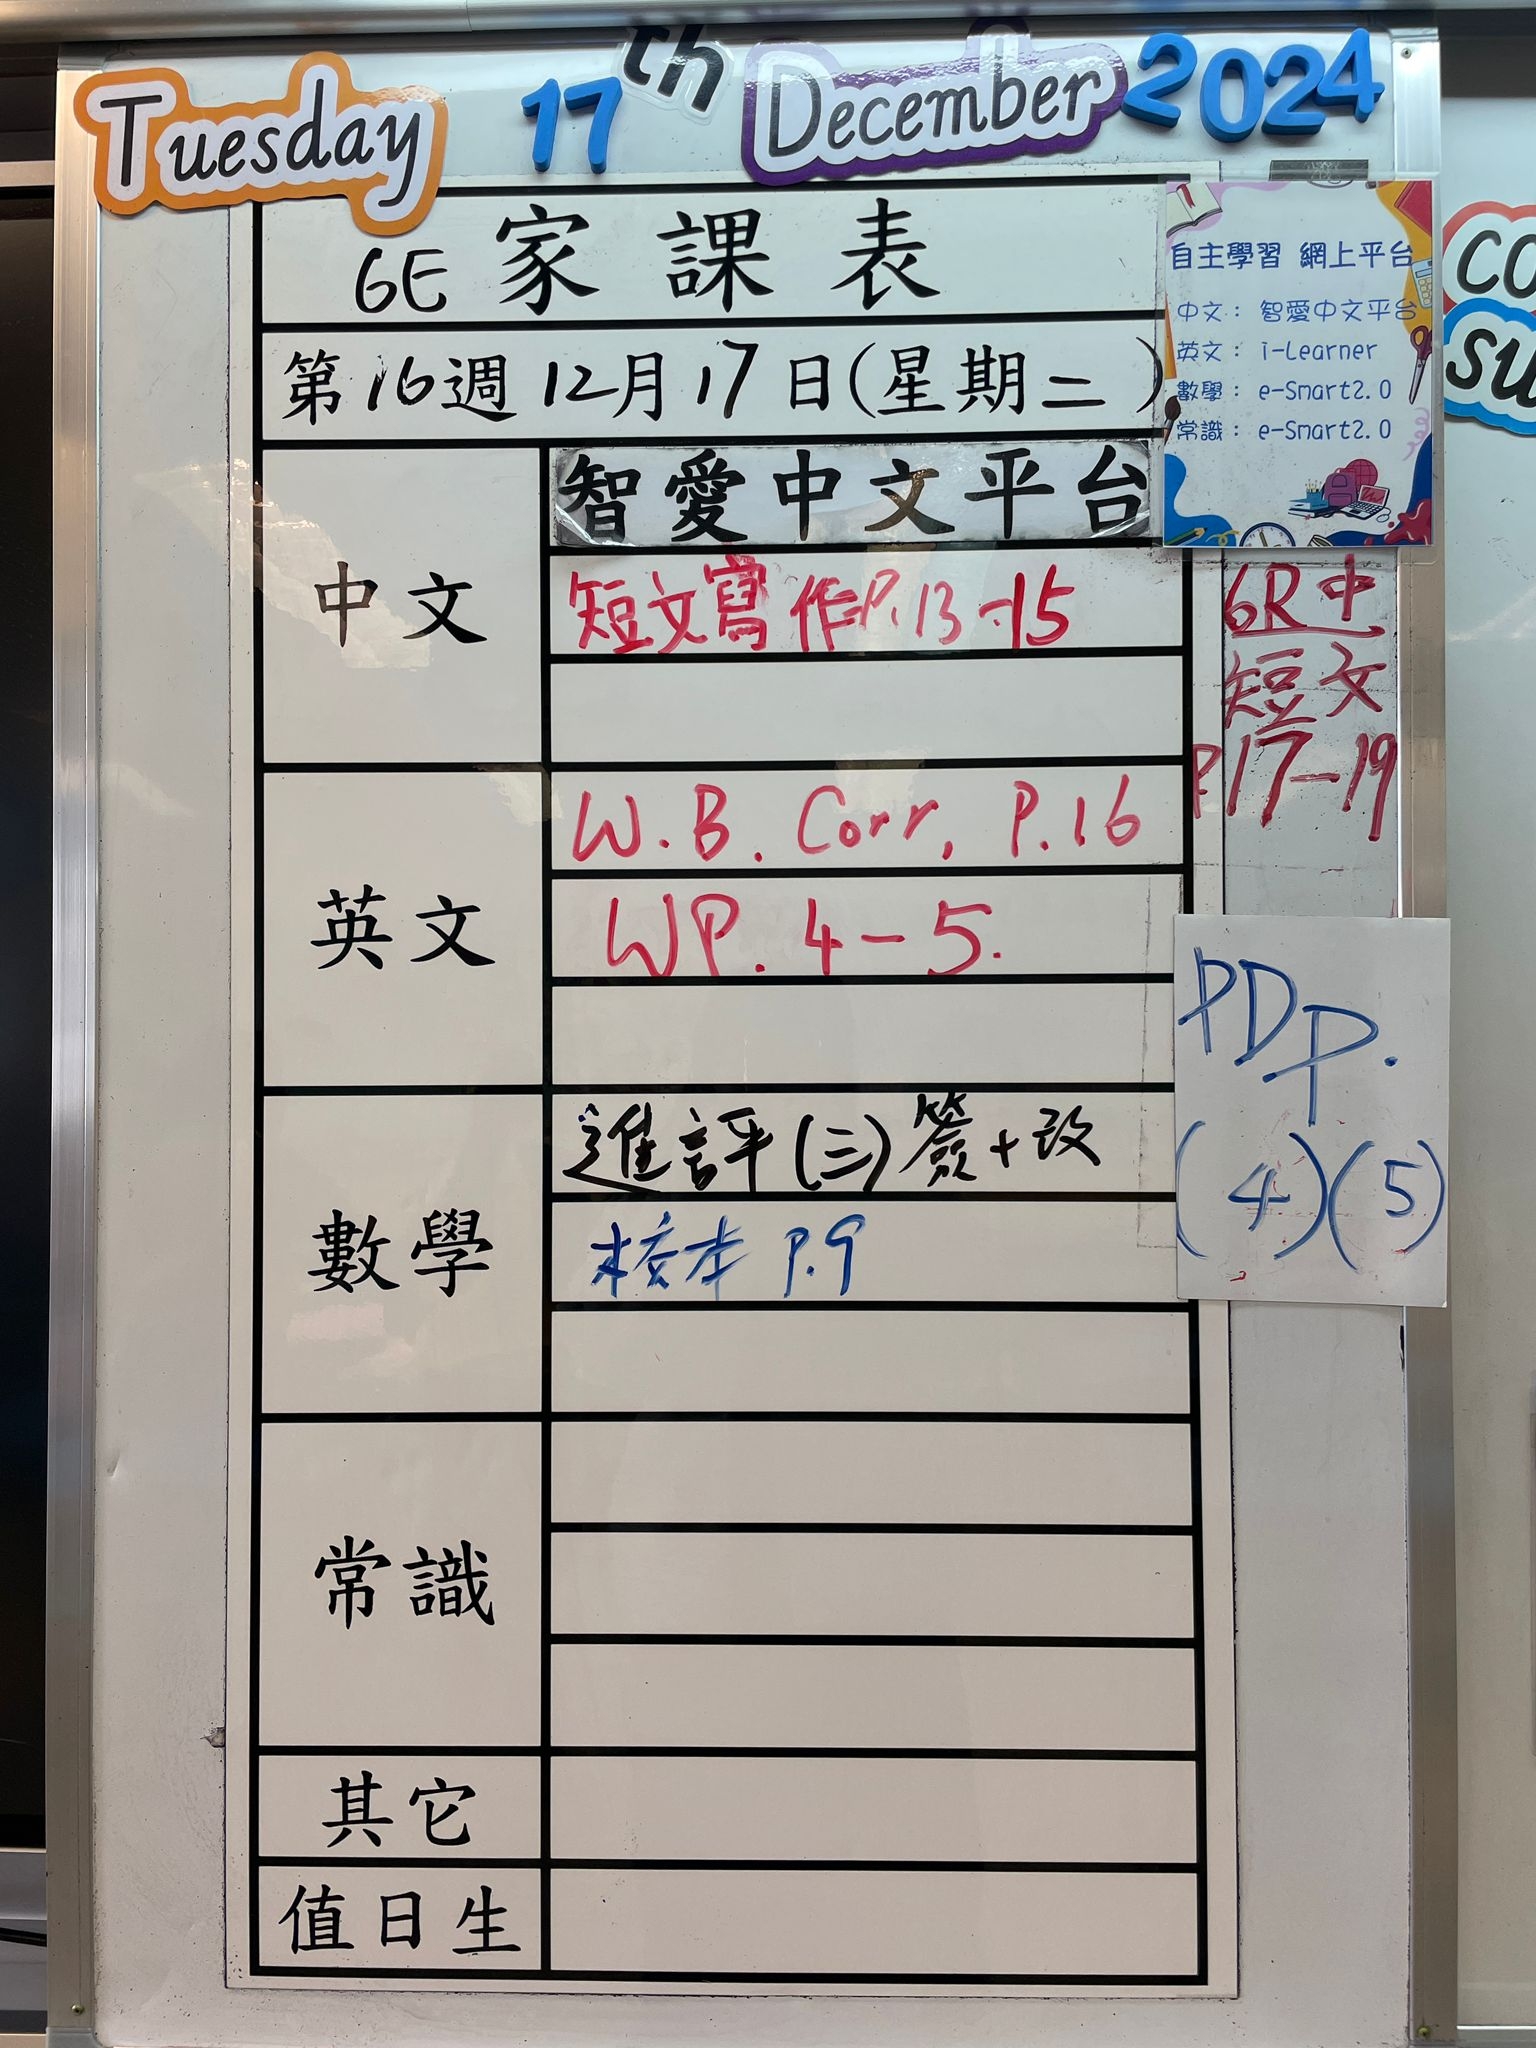 Tuesday 17th December 2024
6E 家課表
第16週12月17日(星期二)
自主學習 網上平台
中文： 智愛中文平台
英文： i-Learner
數學： e-Smart2.0
常識： e-Smart2.0
CO
SU
中文
智愛中文平台
短文寫作P.13-15
6R中
短文
P.17-19
英文
W.B. Corr. P.16
WP. 4-5.
PDP.
(4)(5)
數學
進評(三)簽+改
校本 P.9
常識
其它
值日生